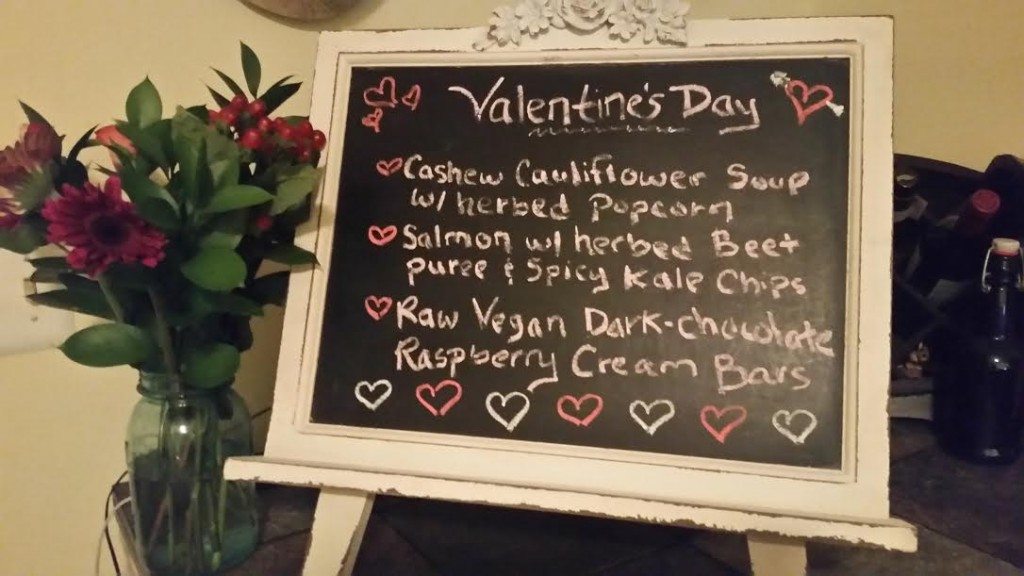 Valentine's Day
Cashew Cauliflower Soup
w/ herbed Popcorn
Salmon w/ herbed Beet
puree & Spicy Kale Chips
Raw Vegan Dark-chocolate
Raspberry Cream Bars